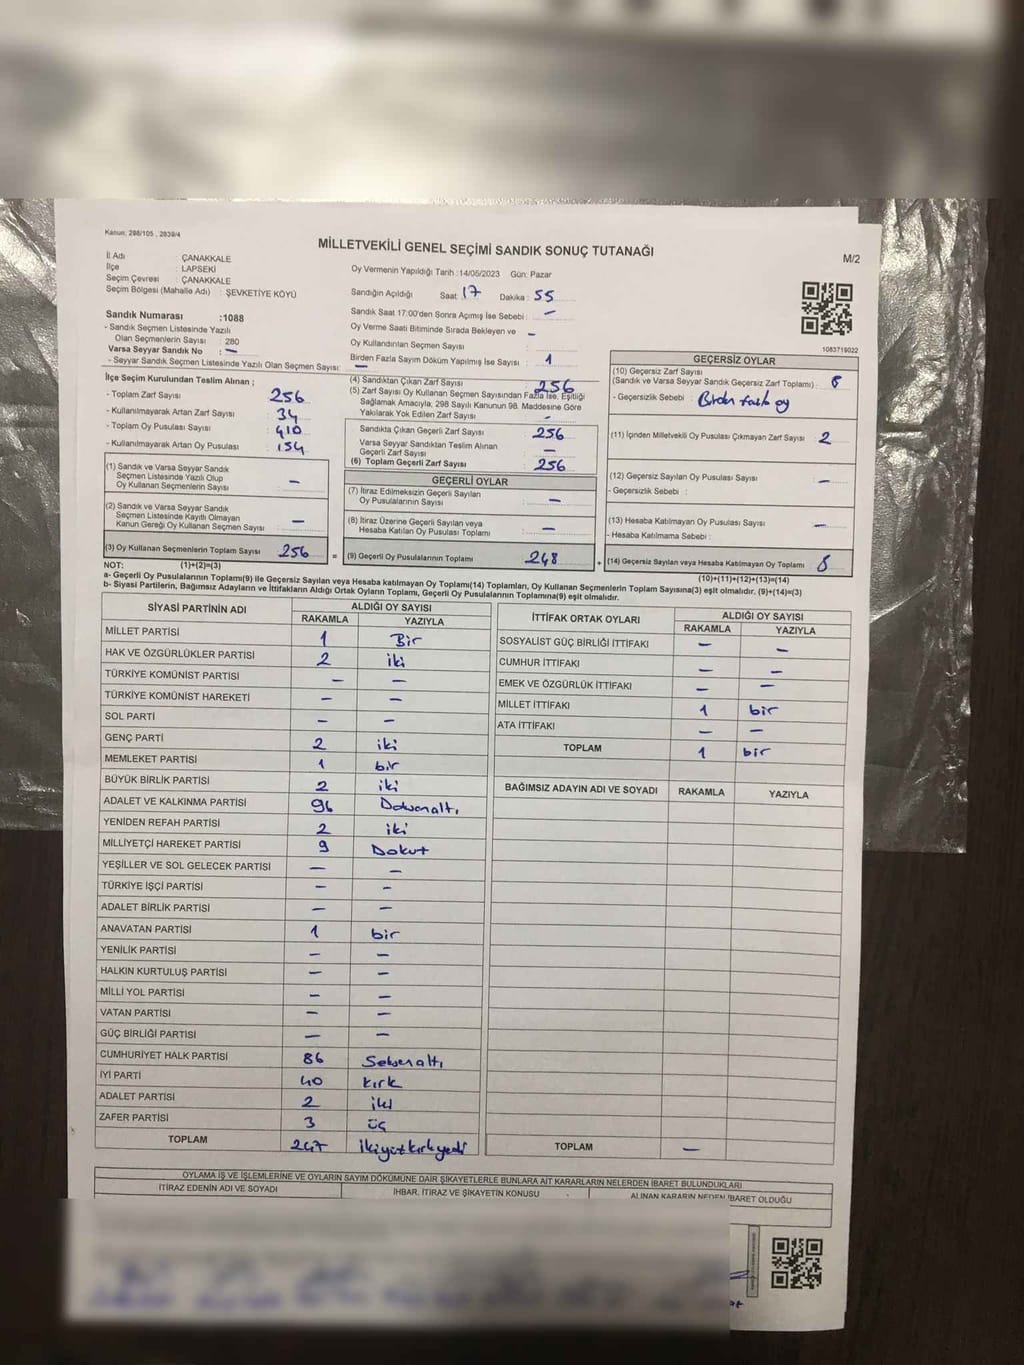 Kanun: 298/105 , 2839/4
MİLLETVEKİLİ GENEL SEÇİMİ SANDIK SONUÇ TUTANAĞI
M/2
İl Adı : ÇANAKKALE
İlçe : LAPSEKİ
Seçim Çevresi : ÇANAKKALE
Seçim Bölgesi (Mahalle Adı) : ŞEVKETİYE KÖYÜ
Oy Vermenin Yapıldığı Tarih :14/05/2023 Gün: Pazar
Sandığın Açıldığı Saat: 17 Dakika : 55
Sandık Saat 17:00'den Sonra Açımış İse Sebebi : —
Oy Verme Saati Bitiminde Sırada Bekleyen ve —
Oy Kullandırılan Seçmen Sayısı
Birden Fazla Sayım Döküm Yapılmış İse Sayısı : 1
Sandık Numarası :1088
- Sandık Seçmen Listesinde Yazılı
Olan Seçmenlerin Sayısı : 280
Varsa Seyyar Sandık No : —
- Seyyar Sandık Seçmen Listesinde Yazılı Olan Seçmen Sayısı: —
1083719022
İlçe Seçim Kurulundan Teslim Alınan ;
- Toplam Zarf Sayısı : 256
- Kullanılmayarak Artan Zarf Sayısı : 34
- Toplam Oy Pusulası Sayısı : 410
- Kullanılmayarak Artan Oy Pusulası : 154
(1) Sandık ve Varsa Seyyar Sandık
Seçmen Listesinde Yazılı Olup
Oy Kullanan Seçmenlerin Sayısı —
(2) Sandık ve Varsa Seyyar Sandık
Seçmen Listesinde Kayıtlı Olmayan
Kanun Gereği Oy Kullanan Seçmen Sayısı —
(3) Oy Kullanan Seçmenlerin Toplam Sayısı 256 =
(4) Sandıktan Çıkan Zarf Sayısı : 256
(5) Zarf Sayısı Oy Kullanan Seçmen Sayısından Fazla İse, Eşitliği
Sağlamak Amacıyla, 298 Sayılı Kanunun 98. Maddesine Göre
Yakılarak Yok Edilen Zarf Sayısı —
Sandıkta Çıkan Geçerli Zarf Sayısı 256
Varsa Seyyar Sandıktan Teslim Alınan
Geçerli Zarf Sayısı —
(6) Toplam Geçerli Zarf Sayısı 256
GEÇERLİ OYLAR
(7) İtiraz Edilmeksizin Geçerli Sayılan
Oy Pusulalarının Sayısı —
(8) İtiraz Üzerine Geçerli Sayılan veya
Hesaba Katılan Oy Pusulası Toplamı —
(9) Geçerli Oy Pusulalarının Toplamı 248 +
GEÇERSİZ OYLAR
(10) Geçersiz Zarf Sayısı
(Sandık ve Varsa Seyyar Sandık Geçersiz Zarf Toplamı) :
- Geçersizlik Sebebi : Birden fazla oy
(11) İçinden Milletvekili Oy Pusulası Çıkmayan Zarf Sayısı : 2
(12) Geçersiz Sayılan Oy Pusulası Sayısı : —
- Geçersizlik Sebebi :
(13) Hesaba Katılmayan Oy Pusulası Sayısı : —
- Hesaba Katılmama Sebebi :
(14) Geçersiz Sayılan veya Hesaba Katılmayan Oy Toplamı 8
NOT: (1)+(2)=(3)
(10)+(11)+(12)+(13)=(14)
a- Geçerli Oy Pusulalarının Toplamı(9) ile Geçersiz Sayılan veya Hesaba katılmayan Oy Toplamı(14) Toplamları, Oy Kullanan Seçmenlerin Toplam Sayısına(3) eşit olmalıdır. (9)+(14)=(3)
b- Siyasi Partilerin, Bağımsız Adayların ve İttifakların Aldığı Ortak Oyların Toplamı, Geçerli Oy Pusulalarının Toplamına(9) eşit olmalıdır.
SİYASİ PARTİNİN ADI ALDIĞI OY SAYISI
RAKAMLA YAZIYLA
MİLLET PARTİSİ 1 Bir
HAK VE ÖZGÜRLÜKLER PARTİSİ 2 iki
TÜRKİYE KOMÜNİST PARTİSİ — —
TÜRKİYE KOMÜNİST HAREKETİ — —
SOL PARTİ — —
GENÇ PARTİ 2 iki
MEMLEKET PARTİSİ 1 bir
BÜYÜK BİRLİK PARTİSİ 2 iki
ADALET VE KALKINMA PARTİSİ 96 Doksanaltı
YENİDEN REFAH PARTİSİ 2 iki
MİLLİYETÇİ HAREKET PARTİSİ 9 Dokuz
YEŞİLLER VE SOL GELECEK PARTİSİ — —
TÜRKİYE İŞÇİ PARTİSİ — —
ADALET BİRLİK PARTİSİ — —
ANAVATAN PARTİSİ 1 bir
YENİLİK PARTİSİ — —
HALKIN KURTULUŞ PARTİSİ — —
MİLLİ YOL PARTİSİ — —
VATAN PARTİSİ — —
GÜÇ BİRLİĞİ PARTİSİ — —
CUMHURİYET HALK PARTİSİ 86 Seksenaltı
İYİ PARTİ 40 kırk
ADALET PARTİSİ 2 iki
ZAFER PARTİSİ 3 üç
TOPLAM 247 ikiyüzkırkyedi
İTTİFAK ORTAK OYLARI ALDIĞI OY SAYISI
RAKAMLA YAZIYLA
SOSYALİST GÜÇ BİRLİĞİ İTTİFAKI — —
CUMHUR İTTİFAKI — —
EMEK VE ÖZGÜRLÜK İTTİFAKI — —
MİLLET İTTİFAKI 1 bir
ATA İTTİFAKI — —
TOPLAM 1 bir
BAĞIMSIZ ADAYIN ADI VE SOYADI RAKAMLA YAZIYLA
TOPLAM —
OYLAMA İŞ VE İŞLEMLERİNE VE OYLARIN SAYIM DÖKÜMÜNE DAİR ŞİKAYETLERLE BUNLARA AİT KARARLARIN NELERDEN İBARET BULUNDUKLARI
İTİRAZ EDENİN ADI VE SOYADI İHBAR, İTİRAZ VE ŞİKAYETİN KONUSU ALINAN KARARIN NEDEN İBARET OLDUĞU